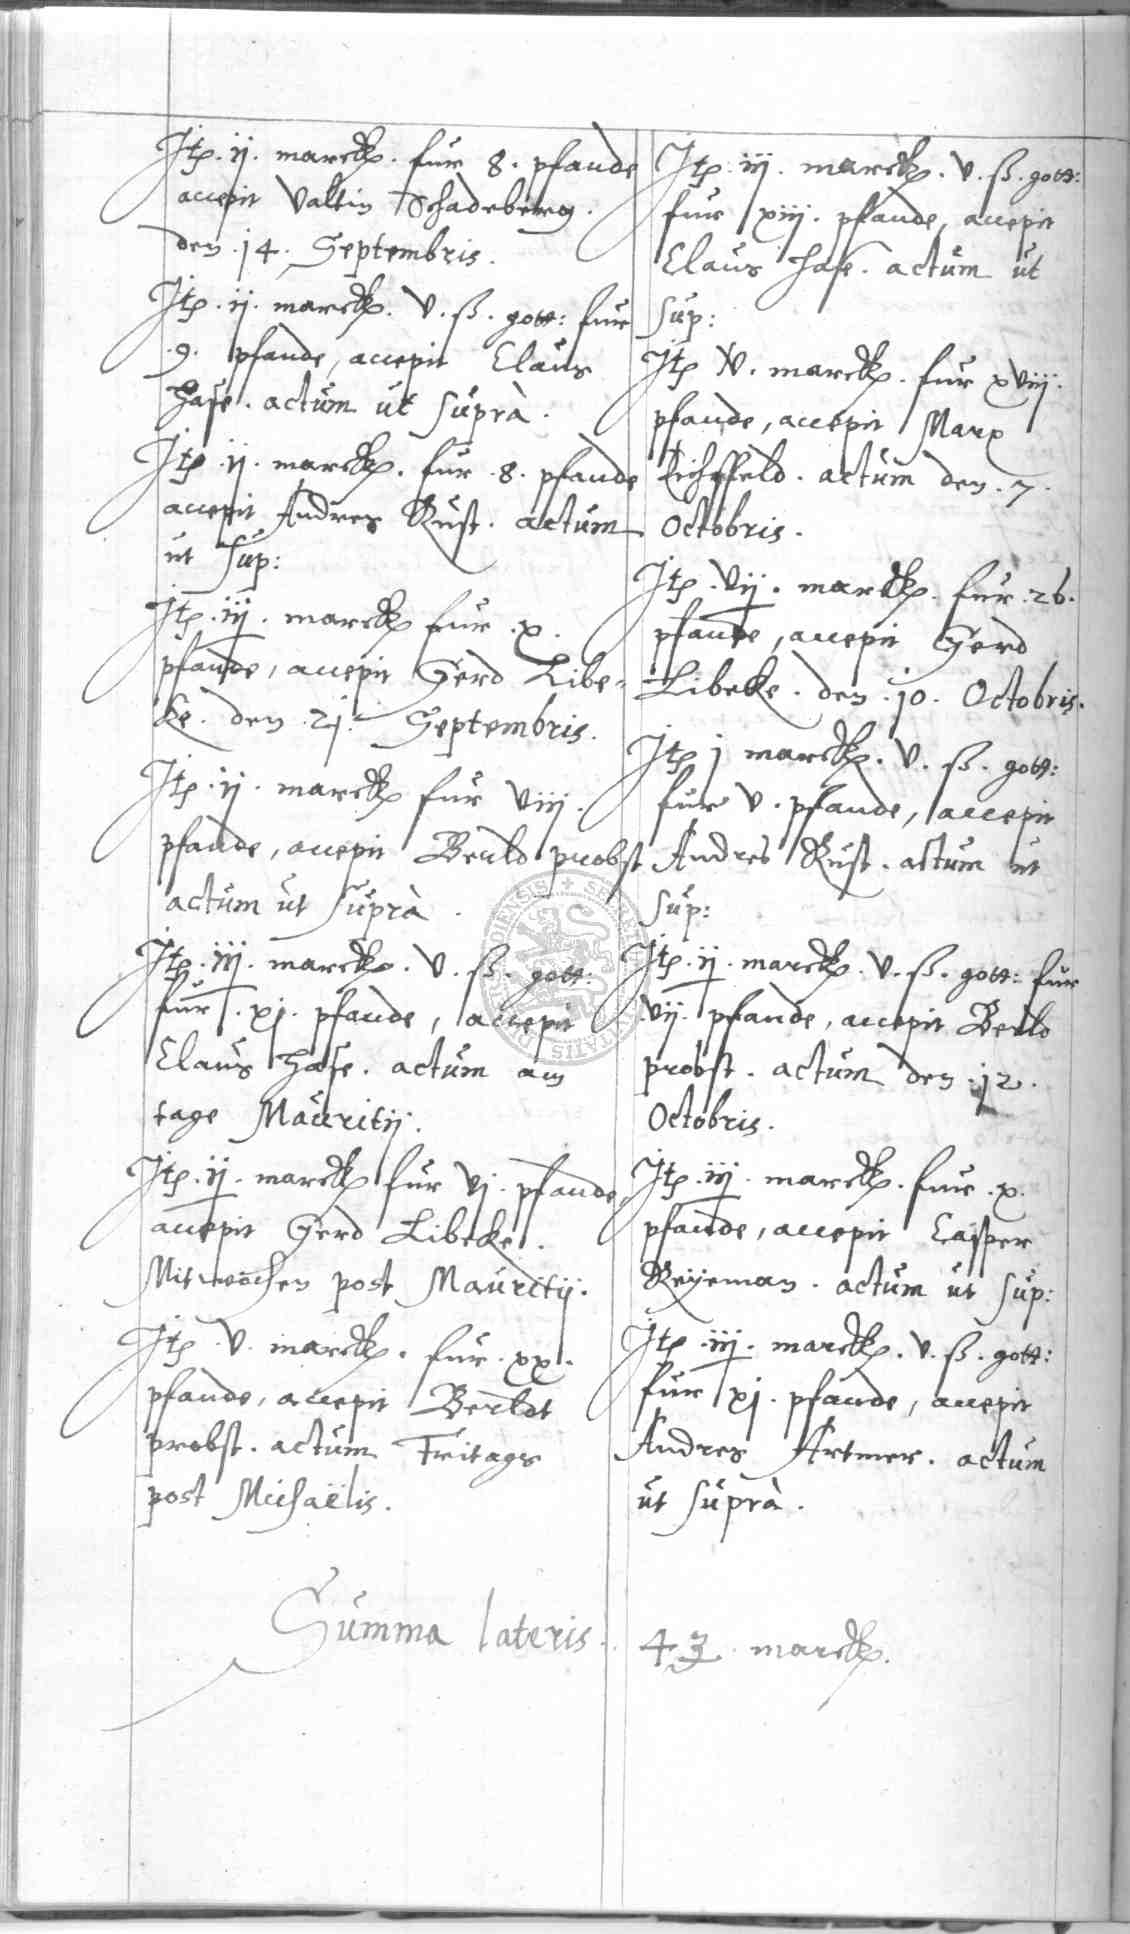 Jtē. ij. marck. fur 8. pfande
accepit Valtin Schadeberg.
den 14. Septembris.
Jtē. ij. marck. v. ß. gott: fur
.9. pfande, accepit Claus
Hase. actum ut suprà.
Jtē. ij. marck. fur .8. pfande
accepit Andres Rust. actum
ut sup:
Jtē. iij. marck fur .x.
pfande, accepit Gerd Libe=
ke. den .21. Septembris.
Jtē. ij. marck fur viij.
pfande, accepit Berld probst
actum ut suprà.
Jtē. iij. marck. v. ß. gott.
fur .xj. pfande, accepit
Claus Hase. actum am
tage Mauritij.
Jtē. ij. marck fur vj. pfande
accepit Gerd Libeke.
Mitwochen post Mauritij.
Jtē .v. marck. fur .xx.
pfande, accepit Berldt
probst. actum Fritags
post Michaëlis.
Jtē. iij. marck. v. ß. gott:
fur xiij. pfande, accepit
Claus Hase. actum ut
sup:
Jtē v. marck. fur xviij.
pfande, accepit Marx
actum den .7.
Octobris.
Jtē .vij. marck. fur .26.
pfande, accepit Gerd
Libeke. den .10. Octobris.
Jtē j marck. v. ß. gott:
fur v. pfande, accepit
Andres Rust. actum ut
sup:
Jtē. ij. marck. v. ß. gott: fur
vij. pfande, accepit Berld
probst. actum den .12.
Octobris.
Jtē. iij. marck. fur .x.
pfande, accepit Casper
Reijeman. actum ut sup:
Jtē .iij. marck. v. ß. gott:
fur xj. pfande, accepit
Andres Artmer. actum
ut suprà.
Summa lateris. 43. marck.